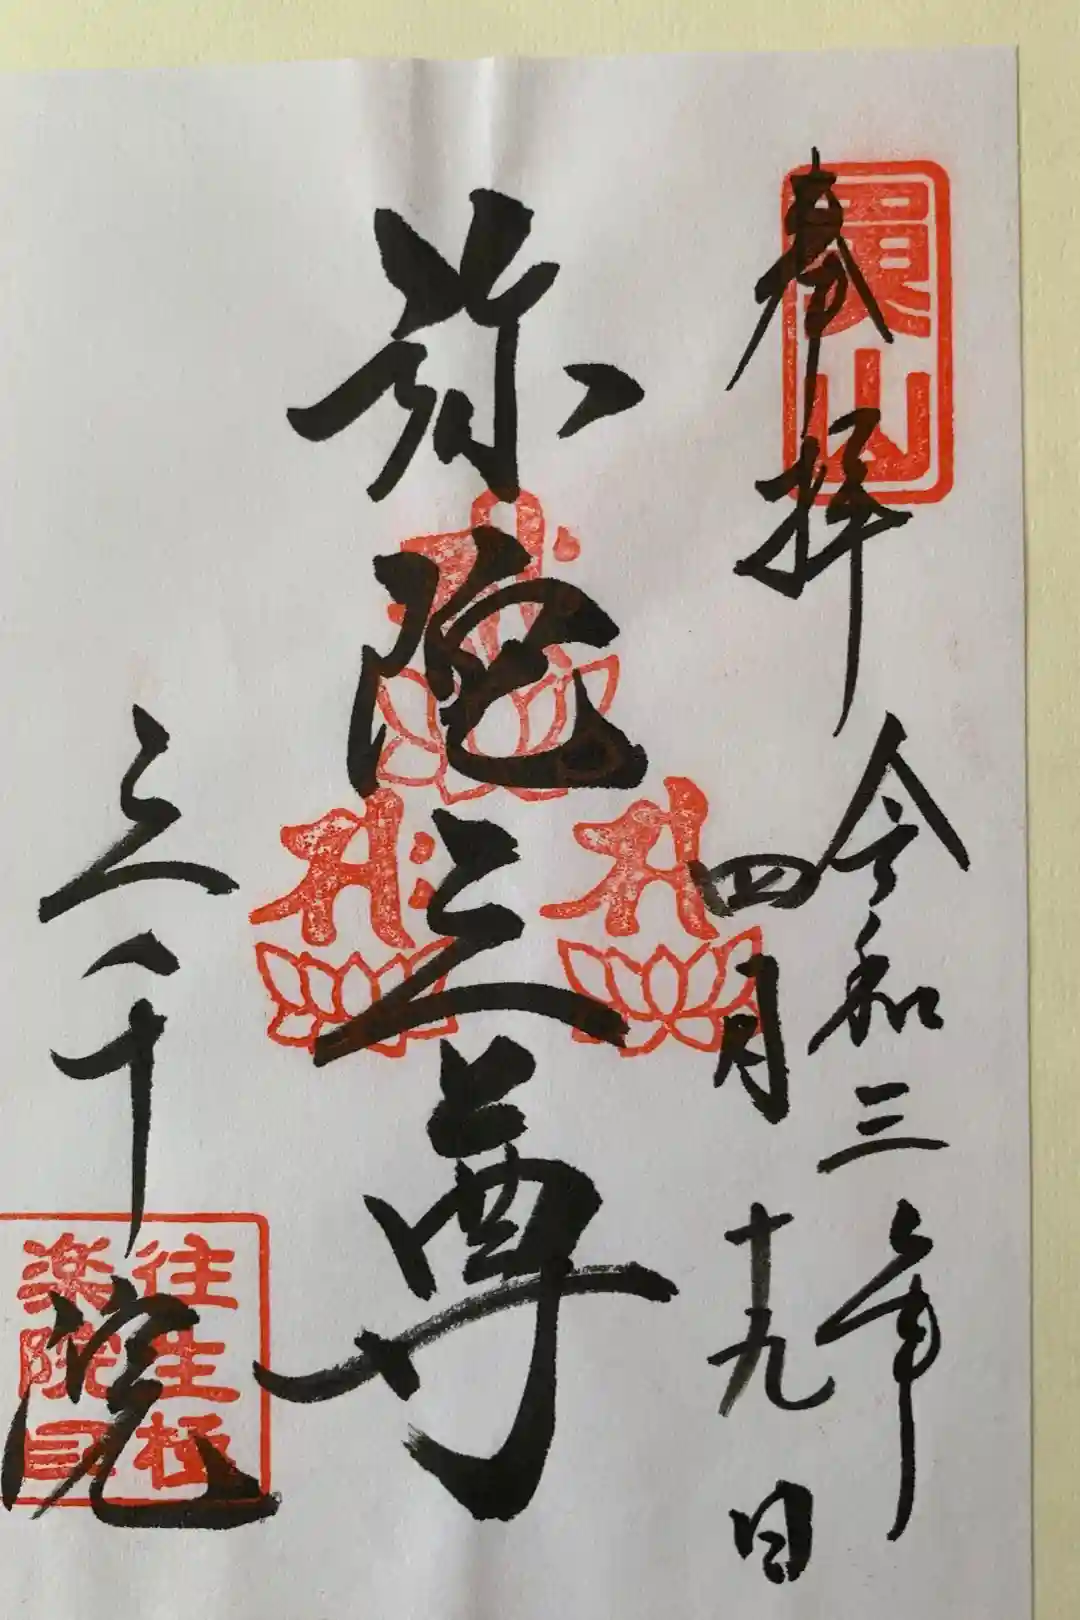 奉拝
魚山
令和三年
四月十九日
弥陀三尊
三千院
往生極
楽院印